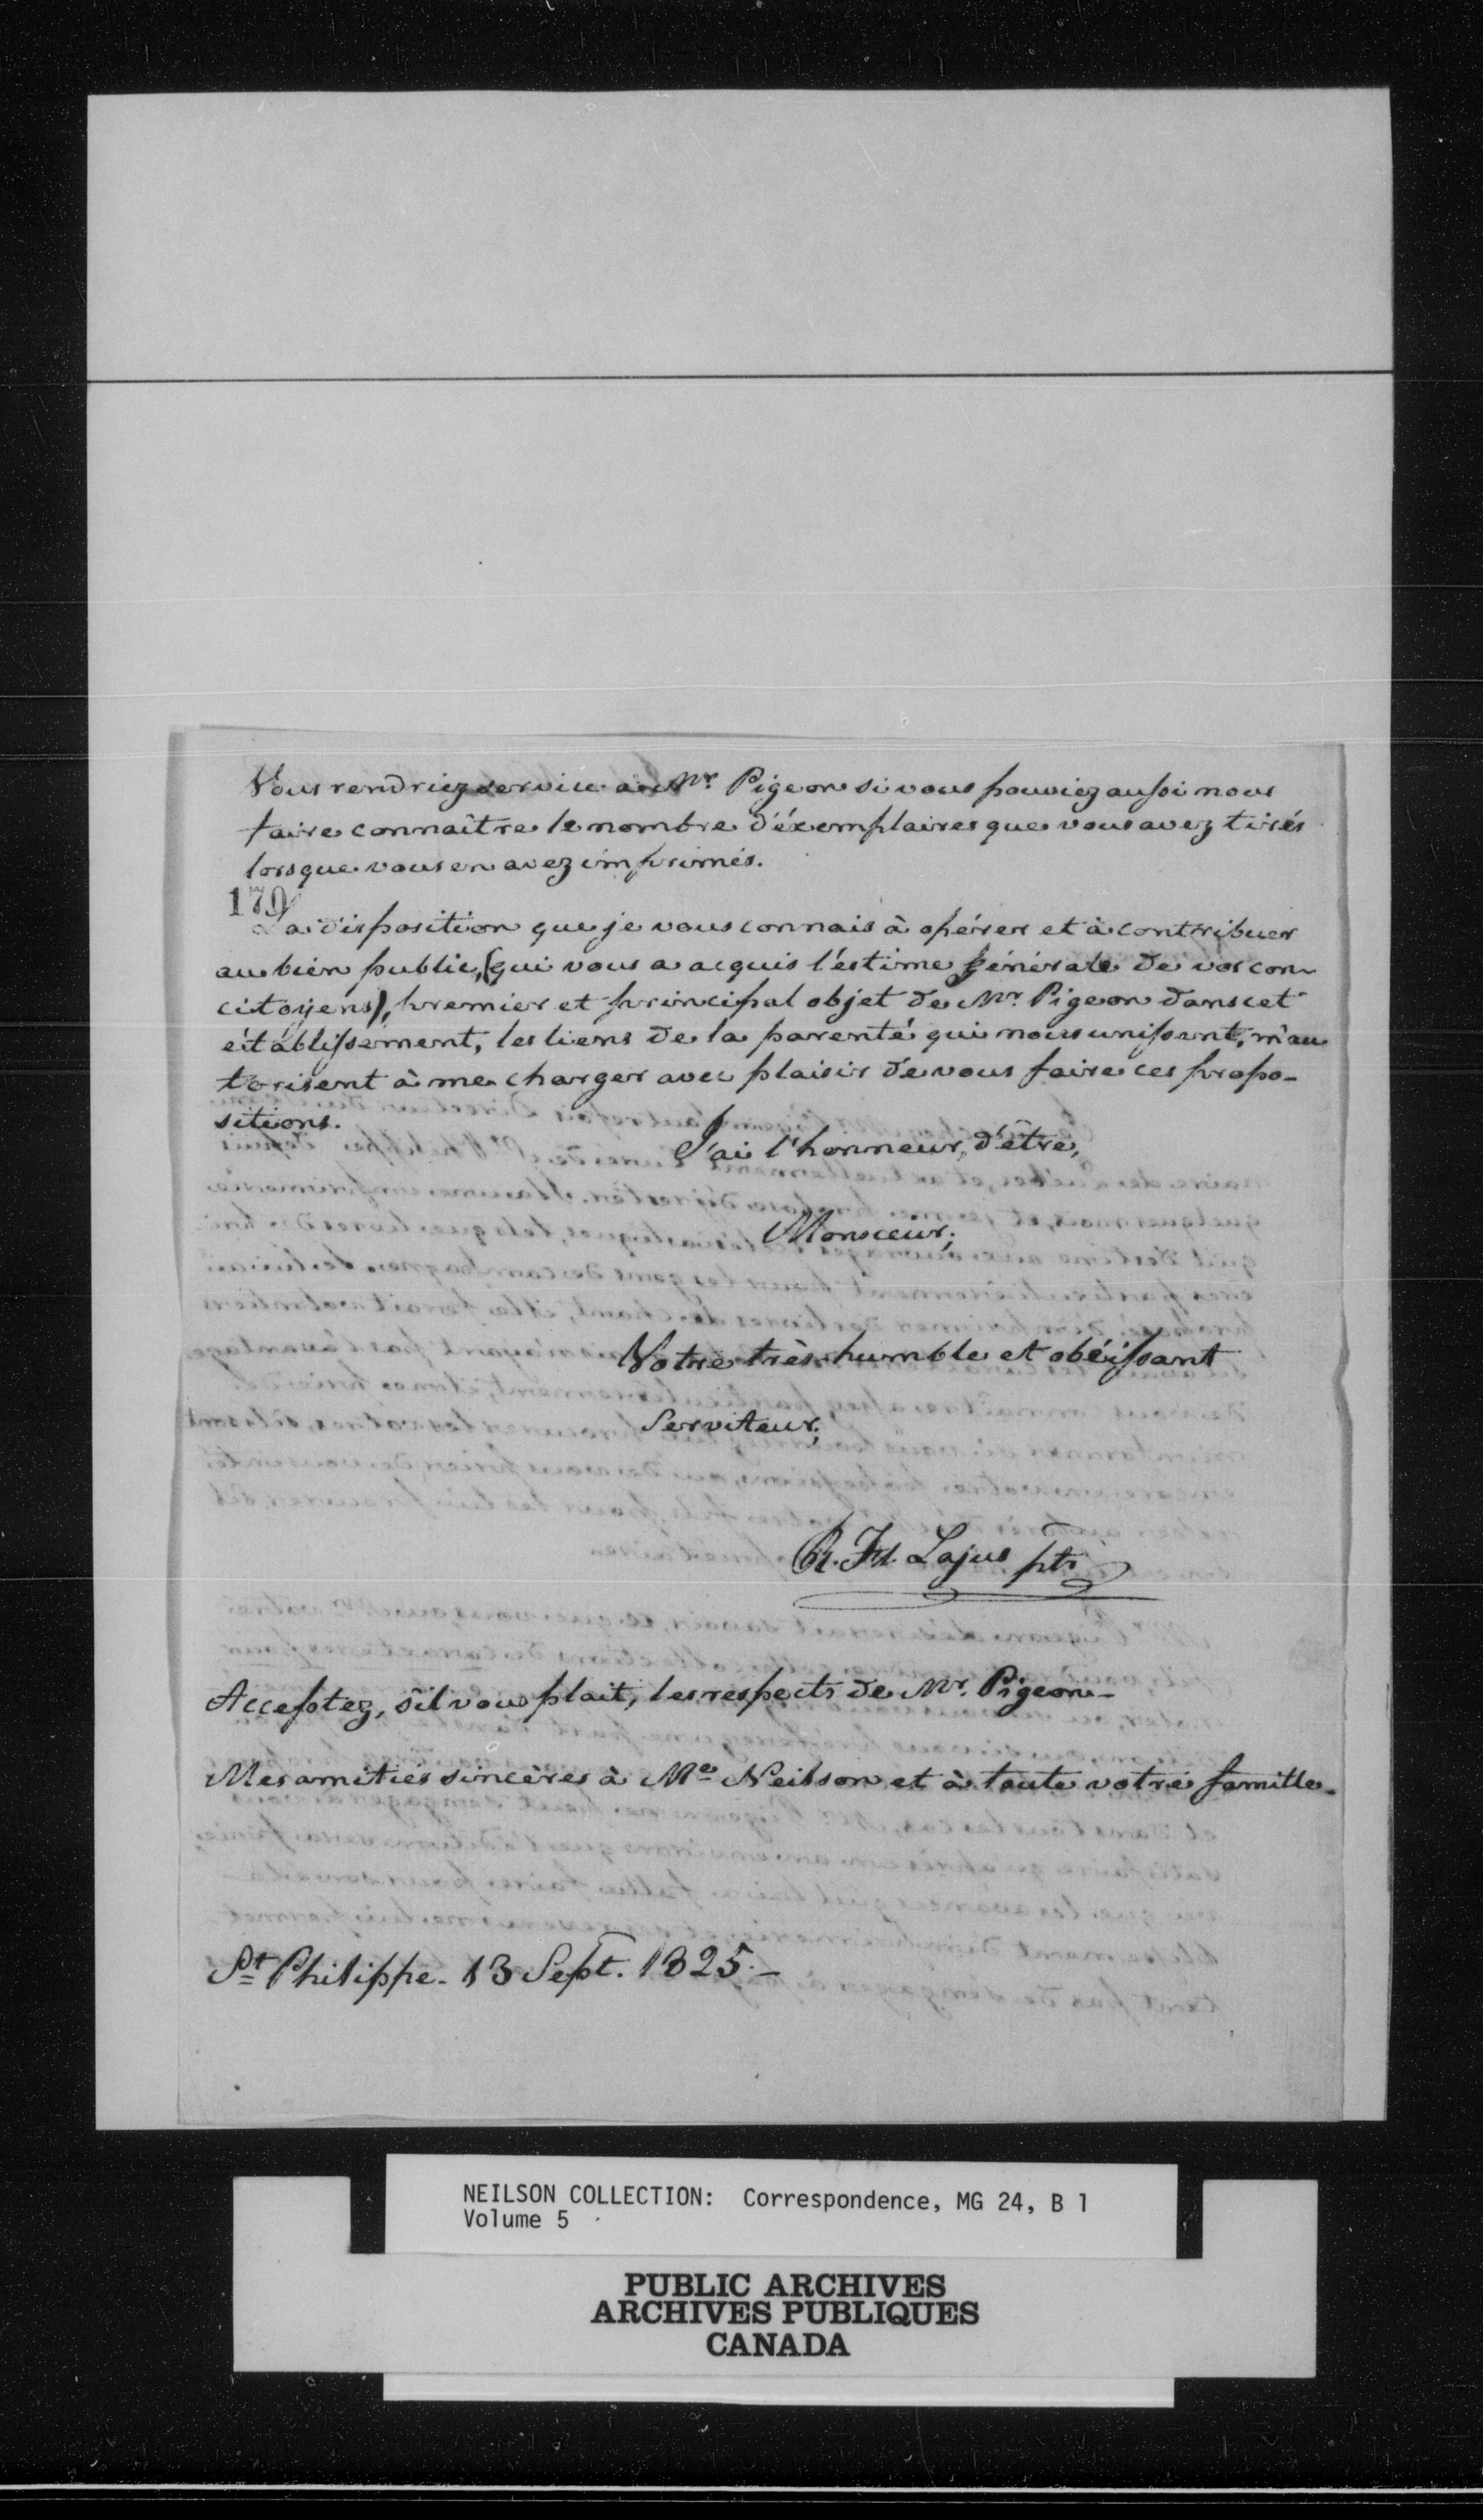 Vous rendriez service à Mr. Pigeon si vous pouviez aussi nous
faire connaître le nombre d'éxemplaires que vous avez tirés
lorsque vous en avez imprimés.
179
La disposition que je vous connais à opérer et à contribuer
au bien public, (qui vous a acquis l'estime générale de vos con
citoyens), premier et principal objet de Mr. Pigeon dans cet
établissement, les liens de la parenté qui nous unissent, m'au
torisent à me charger avec plaisir de vous faire ces propo-
sitions.
J'ai l'honneur d'être,
Monsieur,
Votre très humble et obéissant
Serviteur,
R. Fs. Lajus ptr
Acceptez, s'il vous plait, les respects de Mr. Pigeon -
Mes amitiés sincères à Me Neilson et à toute votre famille -
St Philippe - 13 Sept. 1825 -
NEILSON COLLECTION: Correspondence, MG 24, B 1
Volume 5
PUBLIC ARCHIVES
ARCHIVES PUBLIQUES
CANADA